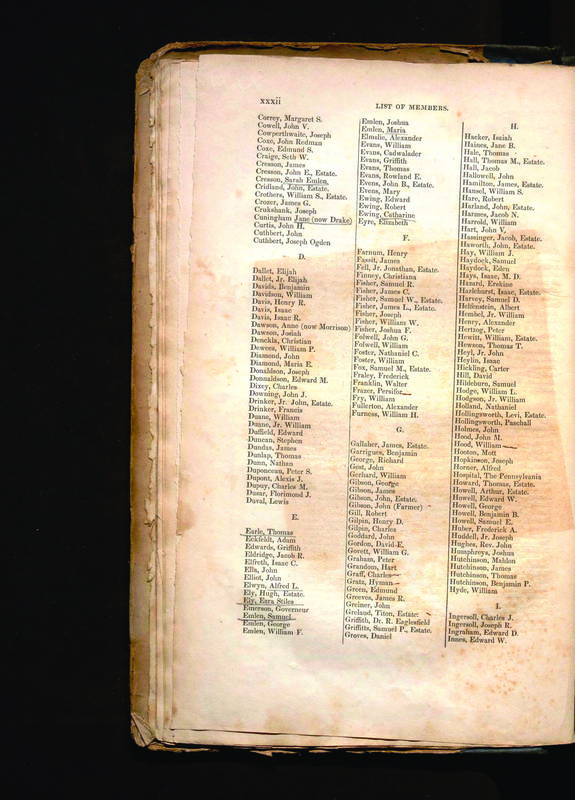 xxxii
LIST OF MEMBERS.
Correy, Margaret S.
Cowell, John V.
Cowperthwaite, Joseph
Coxe, John Redman
Coxe, Edmund S.
Craige, Seth W.
Cresson, James
Cresson, John E., Estate.
Cresson, Sarah Emlen,
Cridland, John, Estate.
Crothers, William S., Estate.
Crozer, James G.
Crukshank, Joseph
Cuningham Jane (now Drake)
Curtis, John H.
Cuthbert, John
Cuthbert, Joseph Ogden
D.
Dallet, Elijah
Dallet, Jr. Elijah
Davids, Benjamin
Davidson, William
Davis, Henry R.
Davis, Isaac
Davis, Isaac R.
Dawson, Anne (now Morrison)
Dawson, Josiah
Denckla, Christian
Dewees, William P.
Diamond, John
Diamond, Maria E.
Donaldson, Joseph
Donnaldson, Edward M.
Dixey, Charles
Downing, John J.
Drinker, Jr. John, Estate.
Drinker, Francis
Duane, William
Duane, Jr. William
Duffield, Edward
Duncan, Stephen
Dundas, James
Dunlap, Thomas
Dunn, Nathan
Duponceau, Peter S.
Dupont, Alexis J.
Dupuy, Charles M.
Dusar, Florimond J.
Duval, Lewis
E.
Earle, Thomas
Eckfeldt, Adam
Edwards, Griffith
Eldridge, Jacob R.
Elfreth, Isaac C.
Ella, John
Elliot, John
Elwyn, Alfred L.
Ely, Hugh, Estate.
Ely, Ezra Stiles
Emerson, Governeur
Emlen, Samuel
Emlen, George
Emlen, William F.
Emlen, Joshua
Emlen, Maria
Elmslie, Alexander
Evans, William
Evans, Cadwalader
Evans, Griffith
Evans, Thomas
Evans, Rowland E.
Evens, John B., Estate.
Evens, Mary
Ewing, Edward
Ewing, Robert
Ewing, Catharine
Eyre, Elizabeth
F.
Farnum, Henry
Fassit, James
Fell, Jr. Jonathan, Estate.
Finney, Christiana
Fisher, Samuel R.
Fisher, James C.
Fisher, Samuel W., Estate.
Fisher, James L., Estate.
Fisher, Joseph
Fisher, William W.
Fisher, Joshua F.
Folwell, John G.
Folwell, William
Foster, Nathaniel C.
Foster, William
Fox, Samuel M., Estate.
Fraley, Frederick
Franklin, Walter
Frazer, Persifor
Fry, William
Fullerton, Alexander
Furness, William H.
G.
Gallaher, James, Estate.
Garrigues, Benjamin
George, Richard
Geist, John
Gerhard, William
Gibson, George
Gibson, James
Gibson, John, Estate.
Gibson, John (Farmer)
Gill, Robert
Gilpin, Henry D.
Gilpin, Charles
Goddard, John
Gordon, David E.
Govett, William G.
Graham, Peter
Grandom, Hart
Graff, Charles
Gratz, Hyman
Green, Edmund
Greeves, James R.
Greiner, John
Grelaud, Titon, Estate.
Griffith, Dr. R. Eaglesfield
Griffitts, Samuel P., Estate.
Groves, Daniel
H.
Hacker, Isaiah
Haines, Jane B.
Hale, Thomas
Hall, Thomas M., Estate.
Hall, Jacob
Hallowell, John
Hamilton, James, Estate.
Hansel, William S.
Hare, Robert
Harland, John, Estate.
Harmes, Jacob N.
Harrold, William
Hart, John V.
Hassinger, Jacob, Estate.
Haworth, John, Estate.
Hay, William J.
Haydock, Samuel
Haydock, Eden
Hays, Isaac, M. D.
Hazard, Erskine
Hazlehurst, Isaac, Estate.
Harvey, Samuel D.
Helfenstein, Albert
Hembel, Jr. William
Henry, Alexander
Hertzog, Peter
Hewitt, William, Estate.
Hewson, Thomas T.
Heyl, Jr. John
Heylin, Isaac
Hickling, Carter
Hill, David
Hildeburn, Samuel
Hodge, William L.
Hodgson, Jr. William
Holland, Nathaniel
Hollingsworth, Levi, Estate.
Hollingsworth, Paschall
Holmes, John
Hood, John M.
Hood, William
Hooton, Mott
Hopkinson, Joseph
Horner, Alfred
Hospital, The Pennsylvania
Howard, Thomas, Estate.
Howell, Arthur, Estate.
Howell, Edward W.
Howell, George
Howell, Benjamin B.
Howell, Samuel E.
Huber, Frederick A.
Huddell, Jr. Joseph
Hughes, Rev. John
Humphreys, Joshua
Hutchinson, Mahlon
Hutchinson, James
Hutchinson, Thomas
Hutchinson, Benjamin P.
Hyde, William
I.
Ingersoll, Charles J.
Ingersoll, Joseph R.
Ingraham, Edward D.
Innes, Edward W.